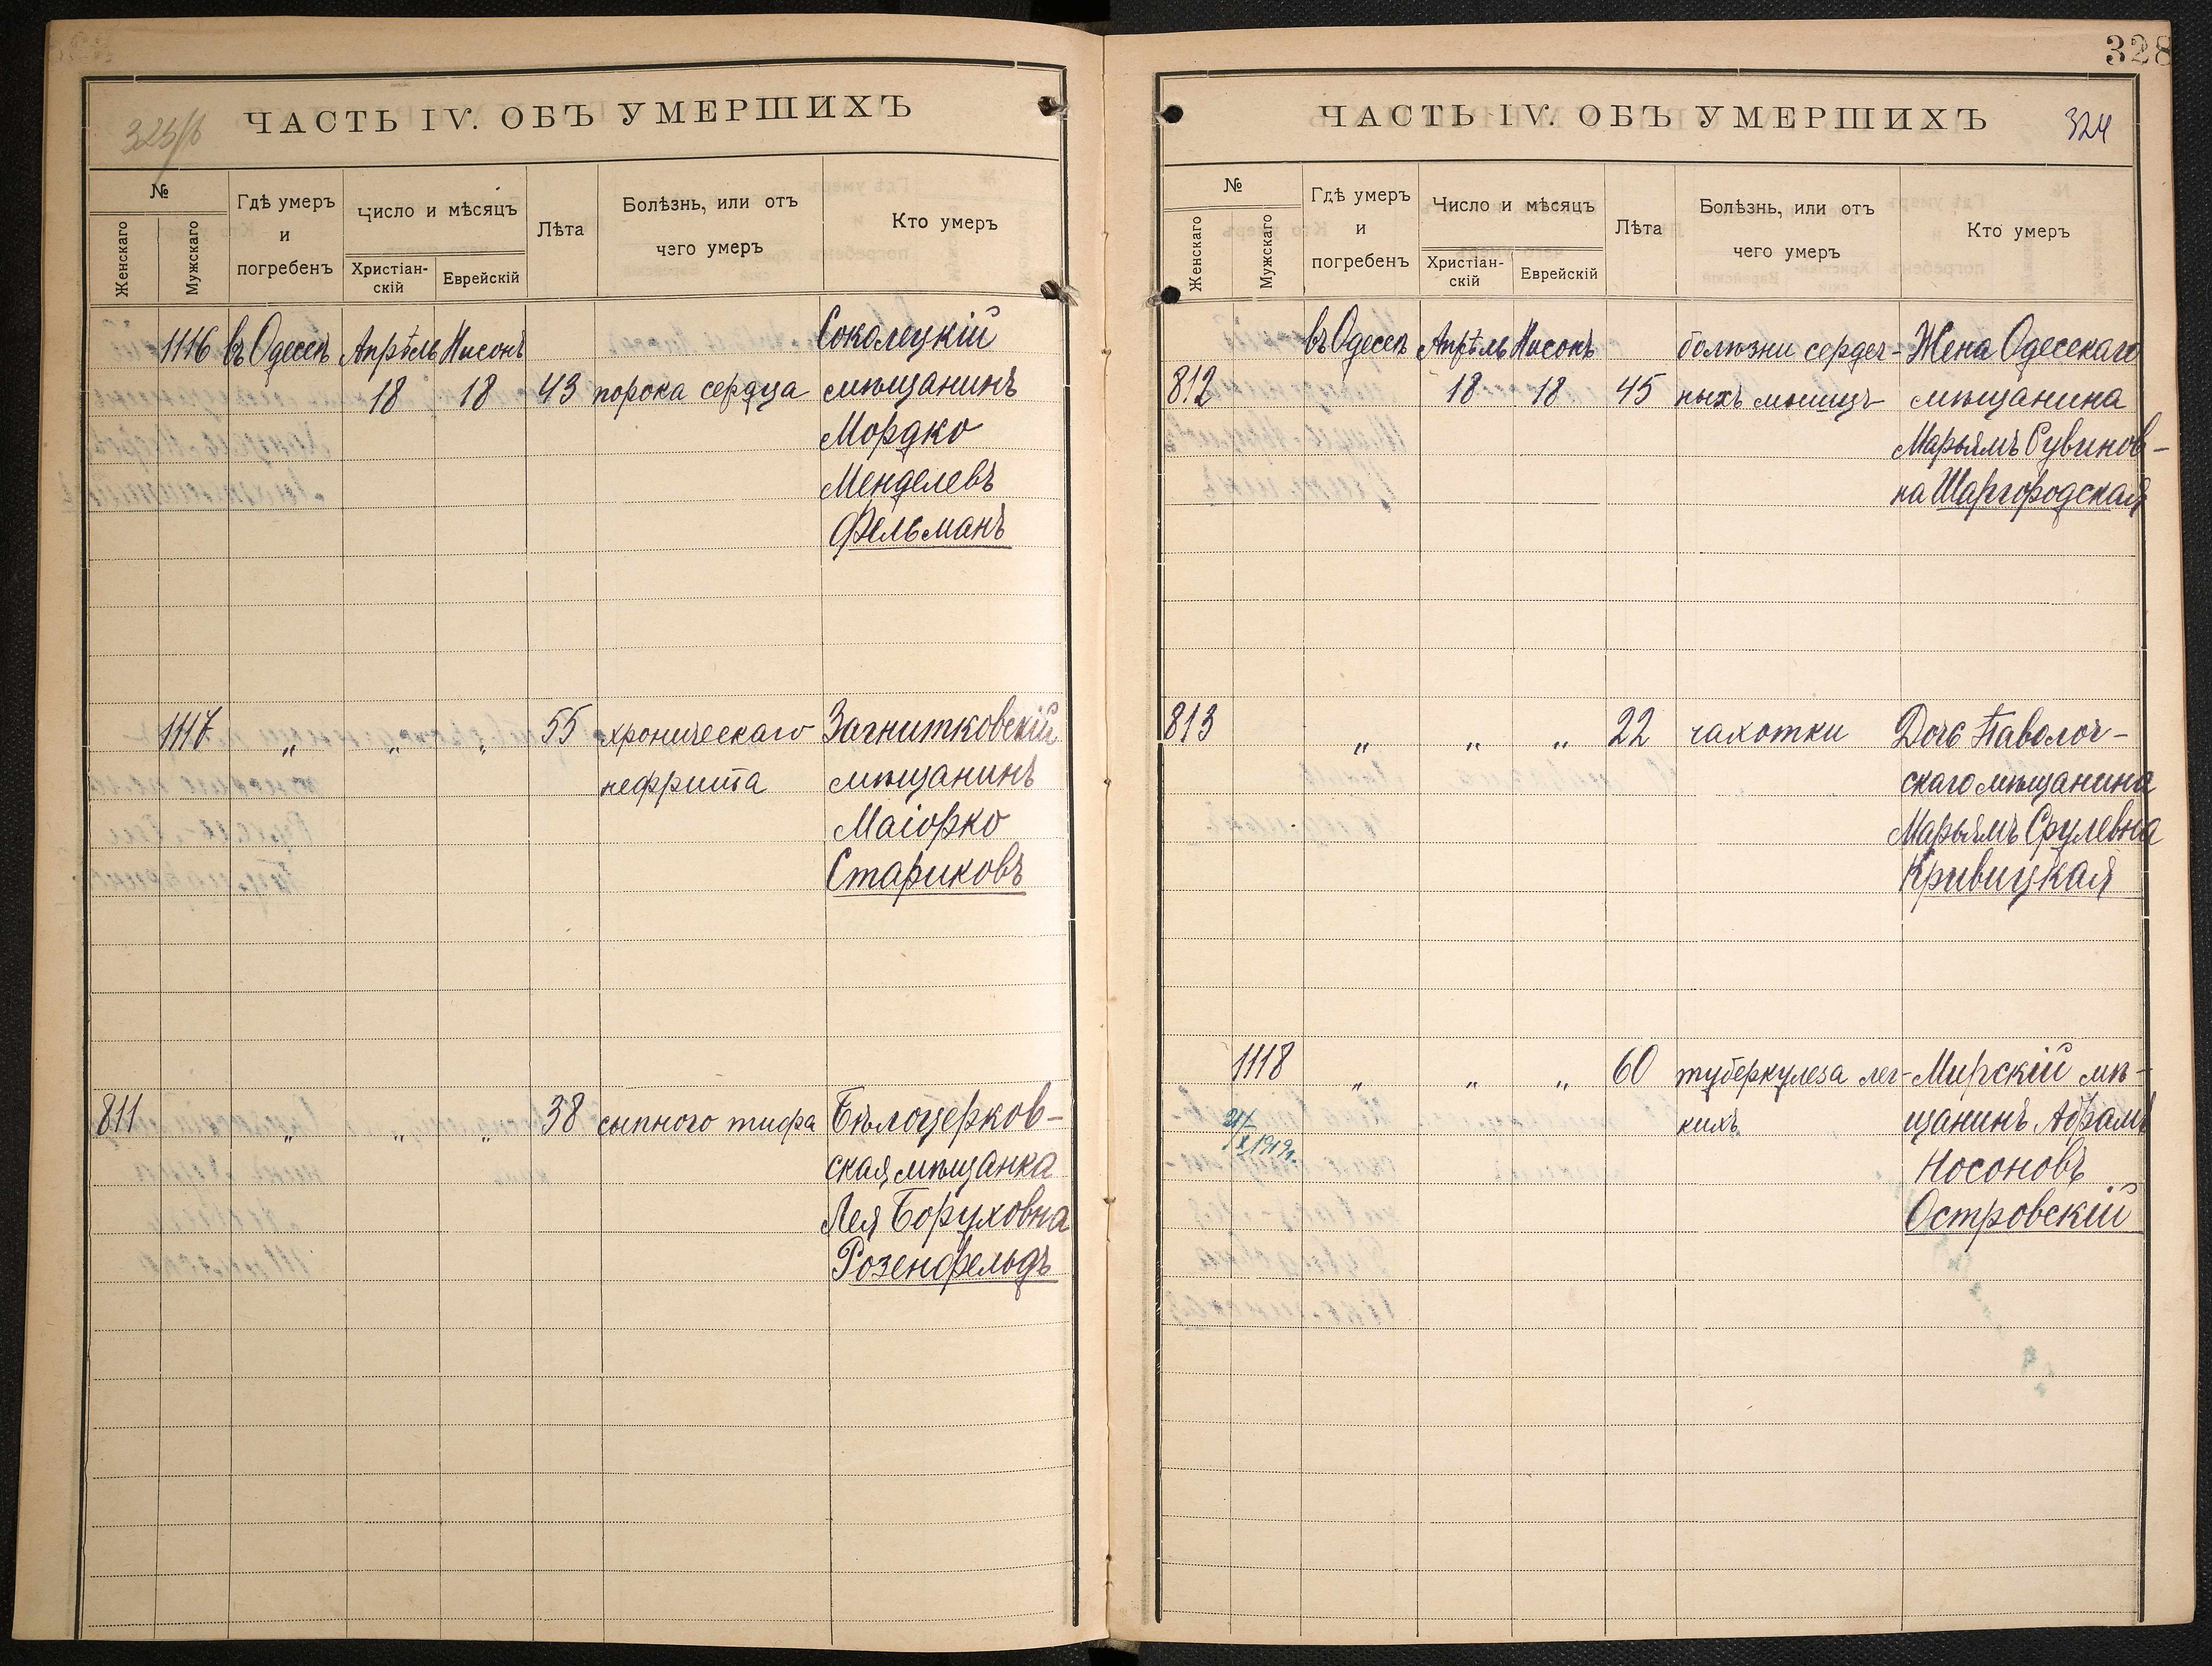 325/б
ЧАСТЬ IV. ОБЪ УМЕРШИХЪ
№
Женскаго
Мужскаго
Гдѣ умеръ
и
погребенъ
Число и мѣсяцъ
Христіан-
скій
Еврейскій
Лѣта
Болѣзнь, или отъ
чего умеръ
Кто умеръ
1116 въ Одессѣ Апрѣль Нисонъ Соколецкій
18 18 43 порока сердца мѣщанинъ
Мордко
Менделевъ
Фельманъ
1117 " " " 55 хроническаго Загнитковскій
нефрита мѣщанинъ
Маіорко
Стариковъ
811 " " " 38 сыпного тифа Бѣлоцерков-
ская мѣщанка
Лея Боруховна
Розенфельдъ
328
ЧАСТЬ IV. ОБЪ УМЕРШИХЪ
324
№
Женскаго
Мужскаго
Гдѣ умеръ
и
погребенъ
Число и мѣсяцъ
Христіан-
скій
Еврейскій
Лѣта
Болѣзнь, или отъ
чего умеръ
Кто умеръ
въ Одессѣ Апрѣль Нисонъ болѣзни сердеч- Жена Одесскаго
812 18 18 45 ныхъ мышцъ мѣщанина
Марьямъ Рувинов-
на Шаргородская
813 " " " 22 чахотки Дочь Паволоч-
скаго мѣщанина
Марьямъ Срулевна
Кривицкая
1118 " " " 60 туберкулеза лег- Мирскій мѣ-
кихъ щанинъ Абрамъ
21/X 1919г.
Носоновъ
Островскій